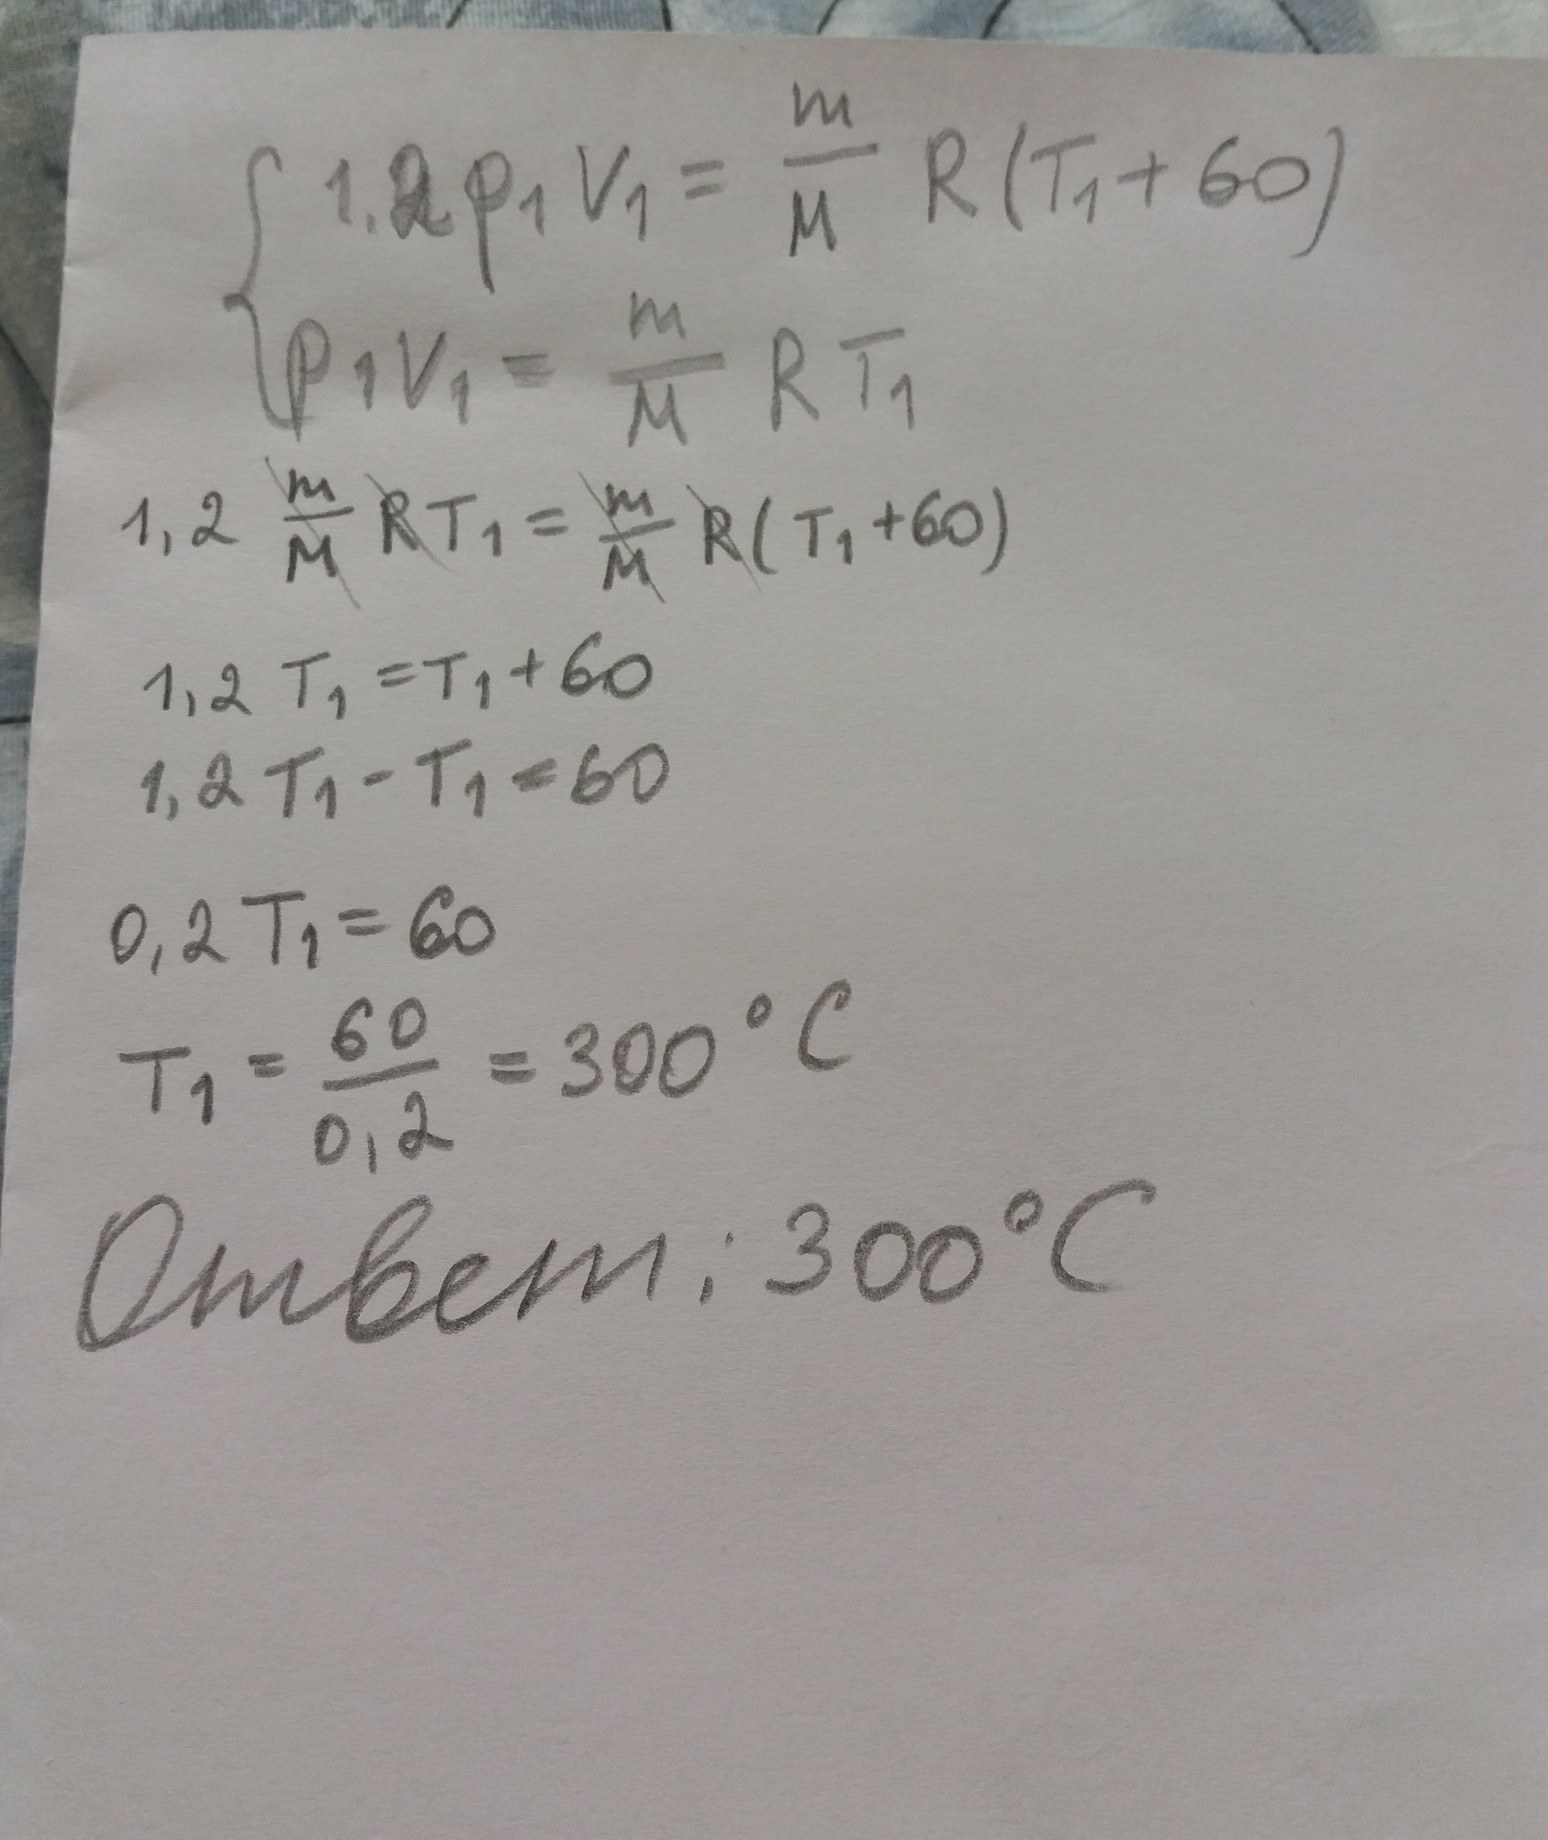 1.2 p₁ V₁ = m/M R (T₁ + 60)
p₁ V₁ = m/M R T₁
1,2 m/M R T₁ = m/M R (T₁ + 60)
1,2 T₁ = T₁ + 60
1,2 T₁ - T₁ = 60
0,2 T₁ = 60
T₁ = 60/0,2 = 300 °C
Ответ: 300 °C